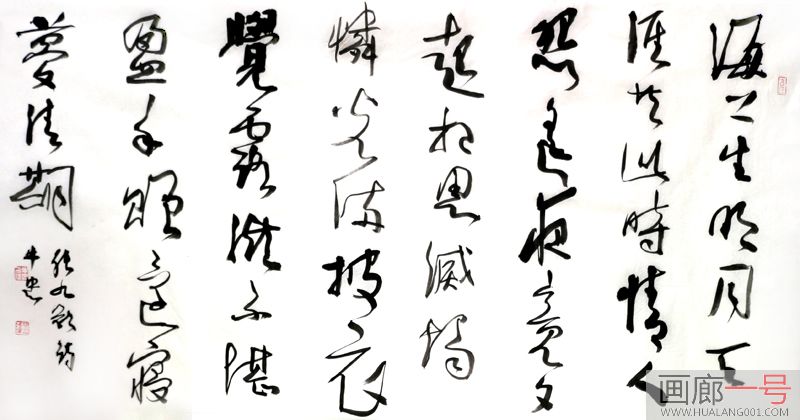 海上生明月天
涯共此時情人
怨遙夜竟夕
起相思滅燭
憐光滿披衣
覺露滋不堪
盈手贈還寢
夢佳期
張九齡詩
画廊一号
WWW.HUALANG001.COM